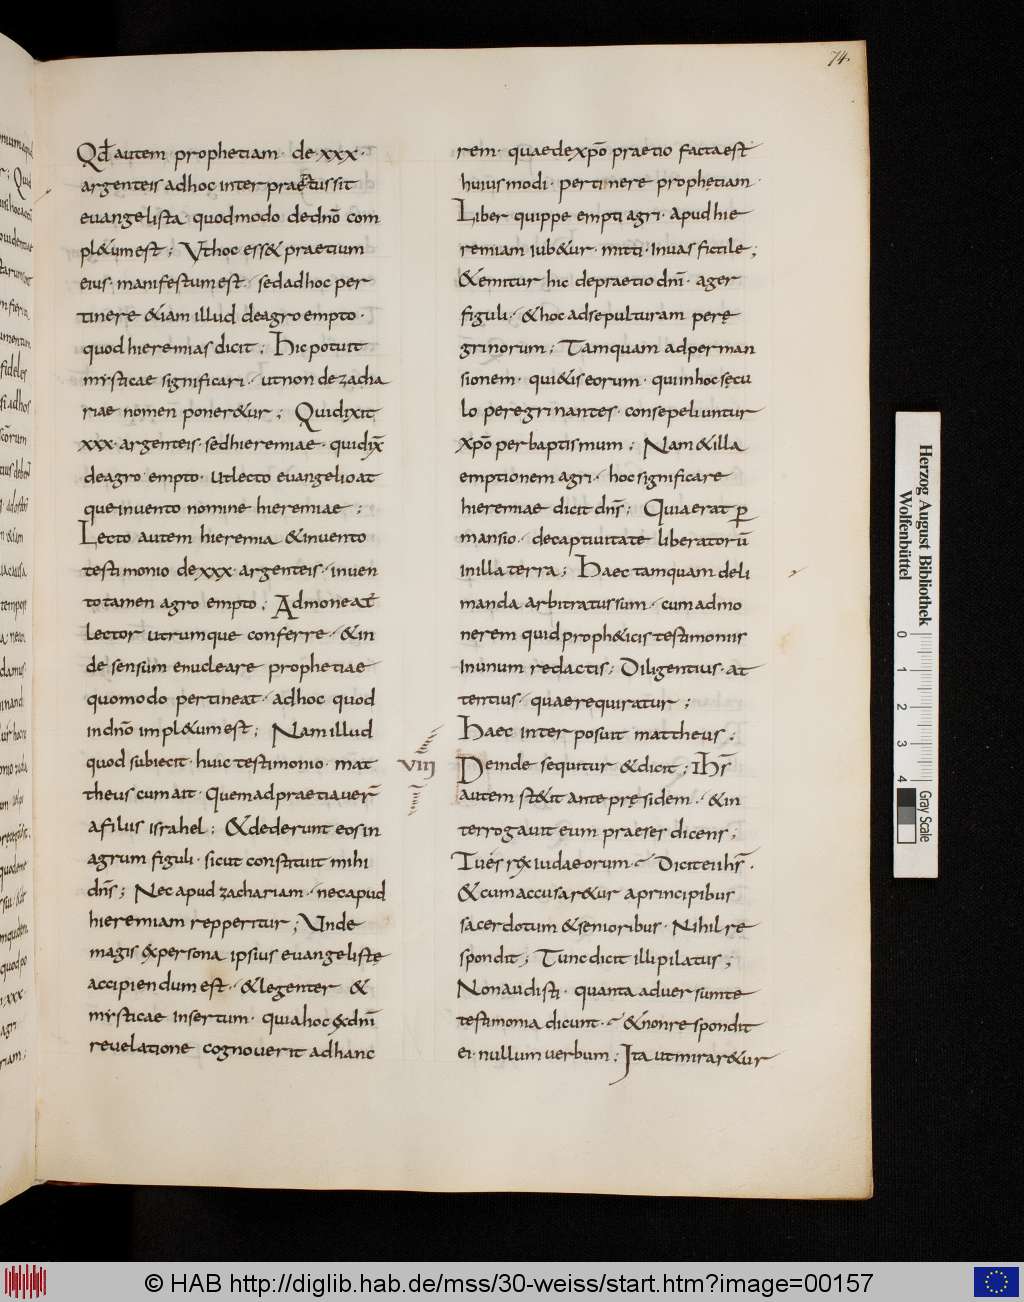 74.
Qđ autem prophetiam · de xxx ·
argenteis adhoc inter praetussit
euangelista · quodmodo dednō com
pl&umest ; Vthoc ess& praetium
eius · manifestumest · sedadhoc per
tinere &iam illud deagro empto ·
quod hieremias dicit ; Hic potuit
mysticae significari · utnon dezacha
riae nomen poner&ur ; Quidixit
xxx · argenteis · sedhieremiae · quidix̄
deagro empto · Utlecto euangelio at
queinuento nomine hieremiae ;
Lecto autem hieremia &inuento
testimonio dexxx · argenteis · inuen
totamen agro empto ; Admoneat̄
lector utrumque conferre · &in
de sensum enucleare prophetiae
quomodo pertineat · adhoc quod
indnō impl&umest ; Nam illud
quod subiecit · huic testimonio · mat
theus cum ait · Quemadpraetiauer̄
afilus israhel ; &dederunt eosin
agrum figuli · sicut constituit mihi
dn̄s ; Nec apud zachariam · necapud
hieremiam repperitur ; Unde
magis &xpersona ipsius euangelistę
accipiendum est · &legenter &
mysticae insertum · quiahoc &xdnī
reuelatione cognouerit adhanc
rem · quaedexpō praetio factaest
huiusmodi · pertinere prophetiam ·
Liber quippe empti agri · apudhie
remiam iub&ur · mitti · inuas fictile ;
&emitur hic depraetio dnī · ager
figuli · &hoc adsepulturam perę
grinorum ; Tamquam adperman
sionem · qui&iseorum · quinhoc secu
lo peregrinantes · consepeliuntur
xpō perbaptismum ; Nam &illa
emptionem agri · hoc significare
hieremiae dicit dn̄s ; Quiaerat p̱
mansio · decaptiuitate liberatorū
inilla terra ; Haec tamquam deli
manda arbitratussum · cumadmo
nerem quid proph&icis testimoniis
inunum redactis ; Diligentius · at
tentius · quaerequiratur ;
Haec interposuit mattheus ;
VIIIJ
Deinde sequitur &dicit ; Ihs̄
autem st&it ante pręsidem · &in
terrogauit eum praeses dicens ;
Tues r&x iudaeorum · Diciteiihs̄ ·
&cumaccusar&ur aprincipibus
sacerdotum &senioribus · Nihil re
spondit ; Tunc dicit illi pilatus ;
Nonaudisti · quanta aduersumte
testimonia dicunt · &nonrespondit
ei · nullum uerbum ; Ita utmirar&ur
Herzog August Bibliothek
Wolfenbüttel
0 1 2 3 4
Gray Scale
© HAB http://diglib.hab.de/mss/30-weiss/start.htm?image=00157